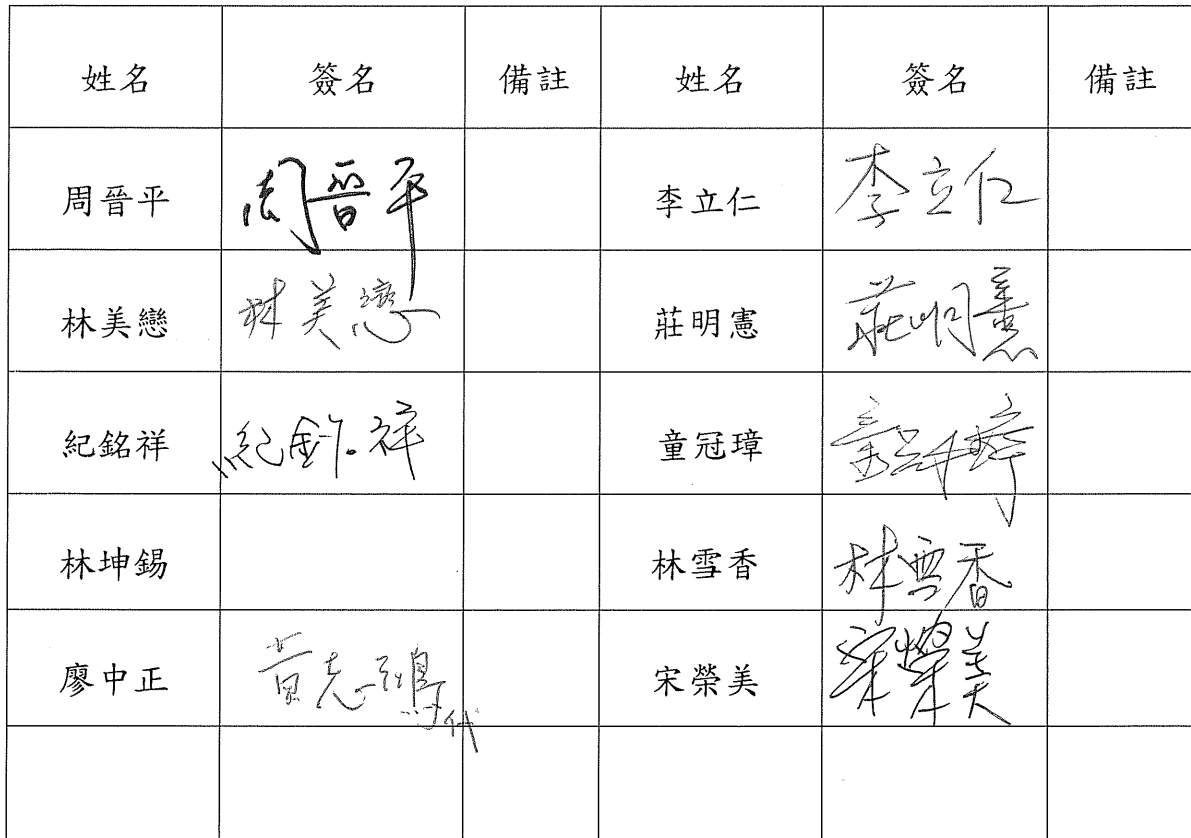 姓名 簽名 備註 姓名 簽名 備註
周晉平 周晉平 李立仁 李立仁
林美戀 林美戀 莊明憲 莊明憲
紀銘祥 紀銘祥 童冠璋 童冠璋
林坤錫 林雪香 林雪香
廖中正 黃志鴻代 宋榮美 宋榮美